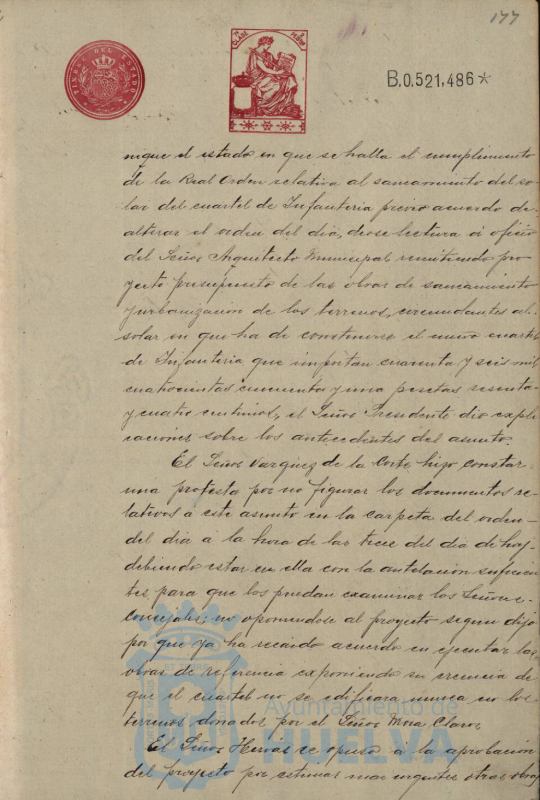 177
TIMBRE DEL ESTADO
CLASE
B.0.521,486*
nique el estado en que se halla el cumplimento
de la Real Orden relativa al saneamiento del so-
lar del cuartel de Infanteria previo acuerdo de
alterar el orden del dia, diose lectura á oficio
del Señor Arquitecto Municipal remitiendo pro
yecto presupuesto de las obras de saneamiento
y urbanizacion de los terrenos, circundantes al
solar en que ha de construirse el nuevo cuartel
de Infanteria que importan cuarenta y seis mil
cuatrocientas cincuenta y una pesetas sesenta
y cuatro centimos, el Señor Presidente dio expli
caciones sobre los antecedentes del asunto.
El Señor Vazquez de la Corte hizo constar
una protesta por no figurar los documentos re-
lativos a este asunto en la carpeta del orden
del dia a la hora de las trece del dia de hoy
debiendo estar en ella con la antelacion suficien
tes para que los puedan examinar los Señores
Concejales; no oponiendose al proyecto segun dijo
por que ya ha recaido acuerdo en ejecutar las
obras de referencia exponiendo su creencia de
que el cuartel no se edificara nunca en los
terrenos donados por el Señor Mora Claros
El Señor Hervas se opuso á la aprobacion
del proyecto por estimar mas urgentes otras obras
Ayuntamiento de
HUELVA